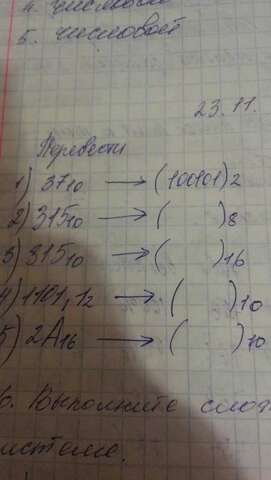 5. числовой
23.11.
Перевести
1) 37₁₀ → (100101)₂
2) 315₁₀ → ( )₈
3) 315₁₀ → ( )₁₆
4) 1101,1₂ → ( )₁₀
5) 2A₁₆ → ( )₁₀
6. Выполните
системе.